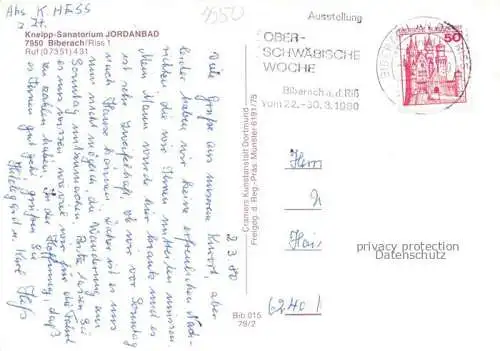 Abs K. HESS
z. Zt.
Kneipp-Sanatorium JORDANBAD
7950 Biberach/Riss 1
Ruf (07351) 431
7950
Ausstellung
OBER-
SCHWÄBISCHE
WOCHE
Biberach a.d. Riß
vom 22.-30.3.1980
50
2.3.80
Viele Grüße aus unserem Kurort, aber
leider haben wir keine erfreulichen Nach-
richten die wir Ihnen mitteilen müssen.
Mein Mann wurde hier krank und es
ist sehr zweifelhaft, ob wir vor Sonntag
nach Hause können. Daher ist es uns
nicht möglich, die Wanderung am
Sonntag mitzumachen. Bitte lassen Sie
es uns wissen wieviel wir für die Fahrt
zu zahlen haben. In der Hoffnung, daß
es Ihnen gut geht grüßen Sie
Hildegard u. Karl Heß
Cramers Kunstanstalt Dortmund
Freigeg. d. Reg.-Präs. Münster 6191/78
Bib 015
79/2
Herrn
6240
privacy protection
Datenschutz